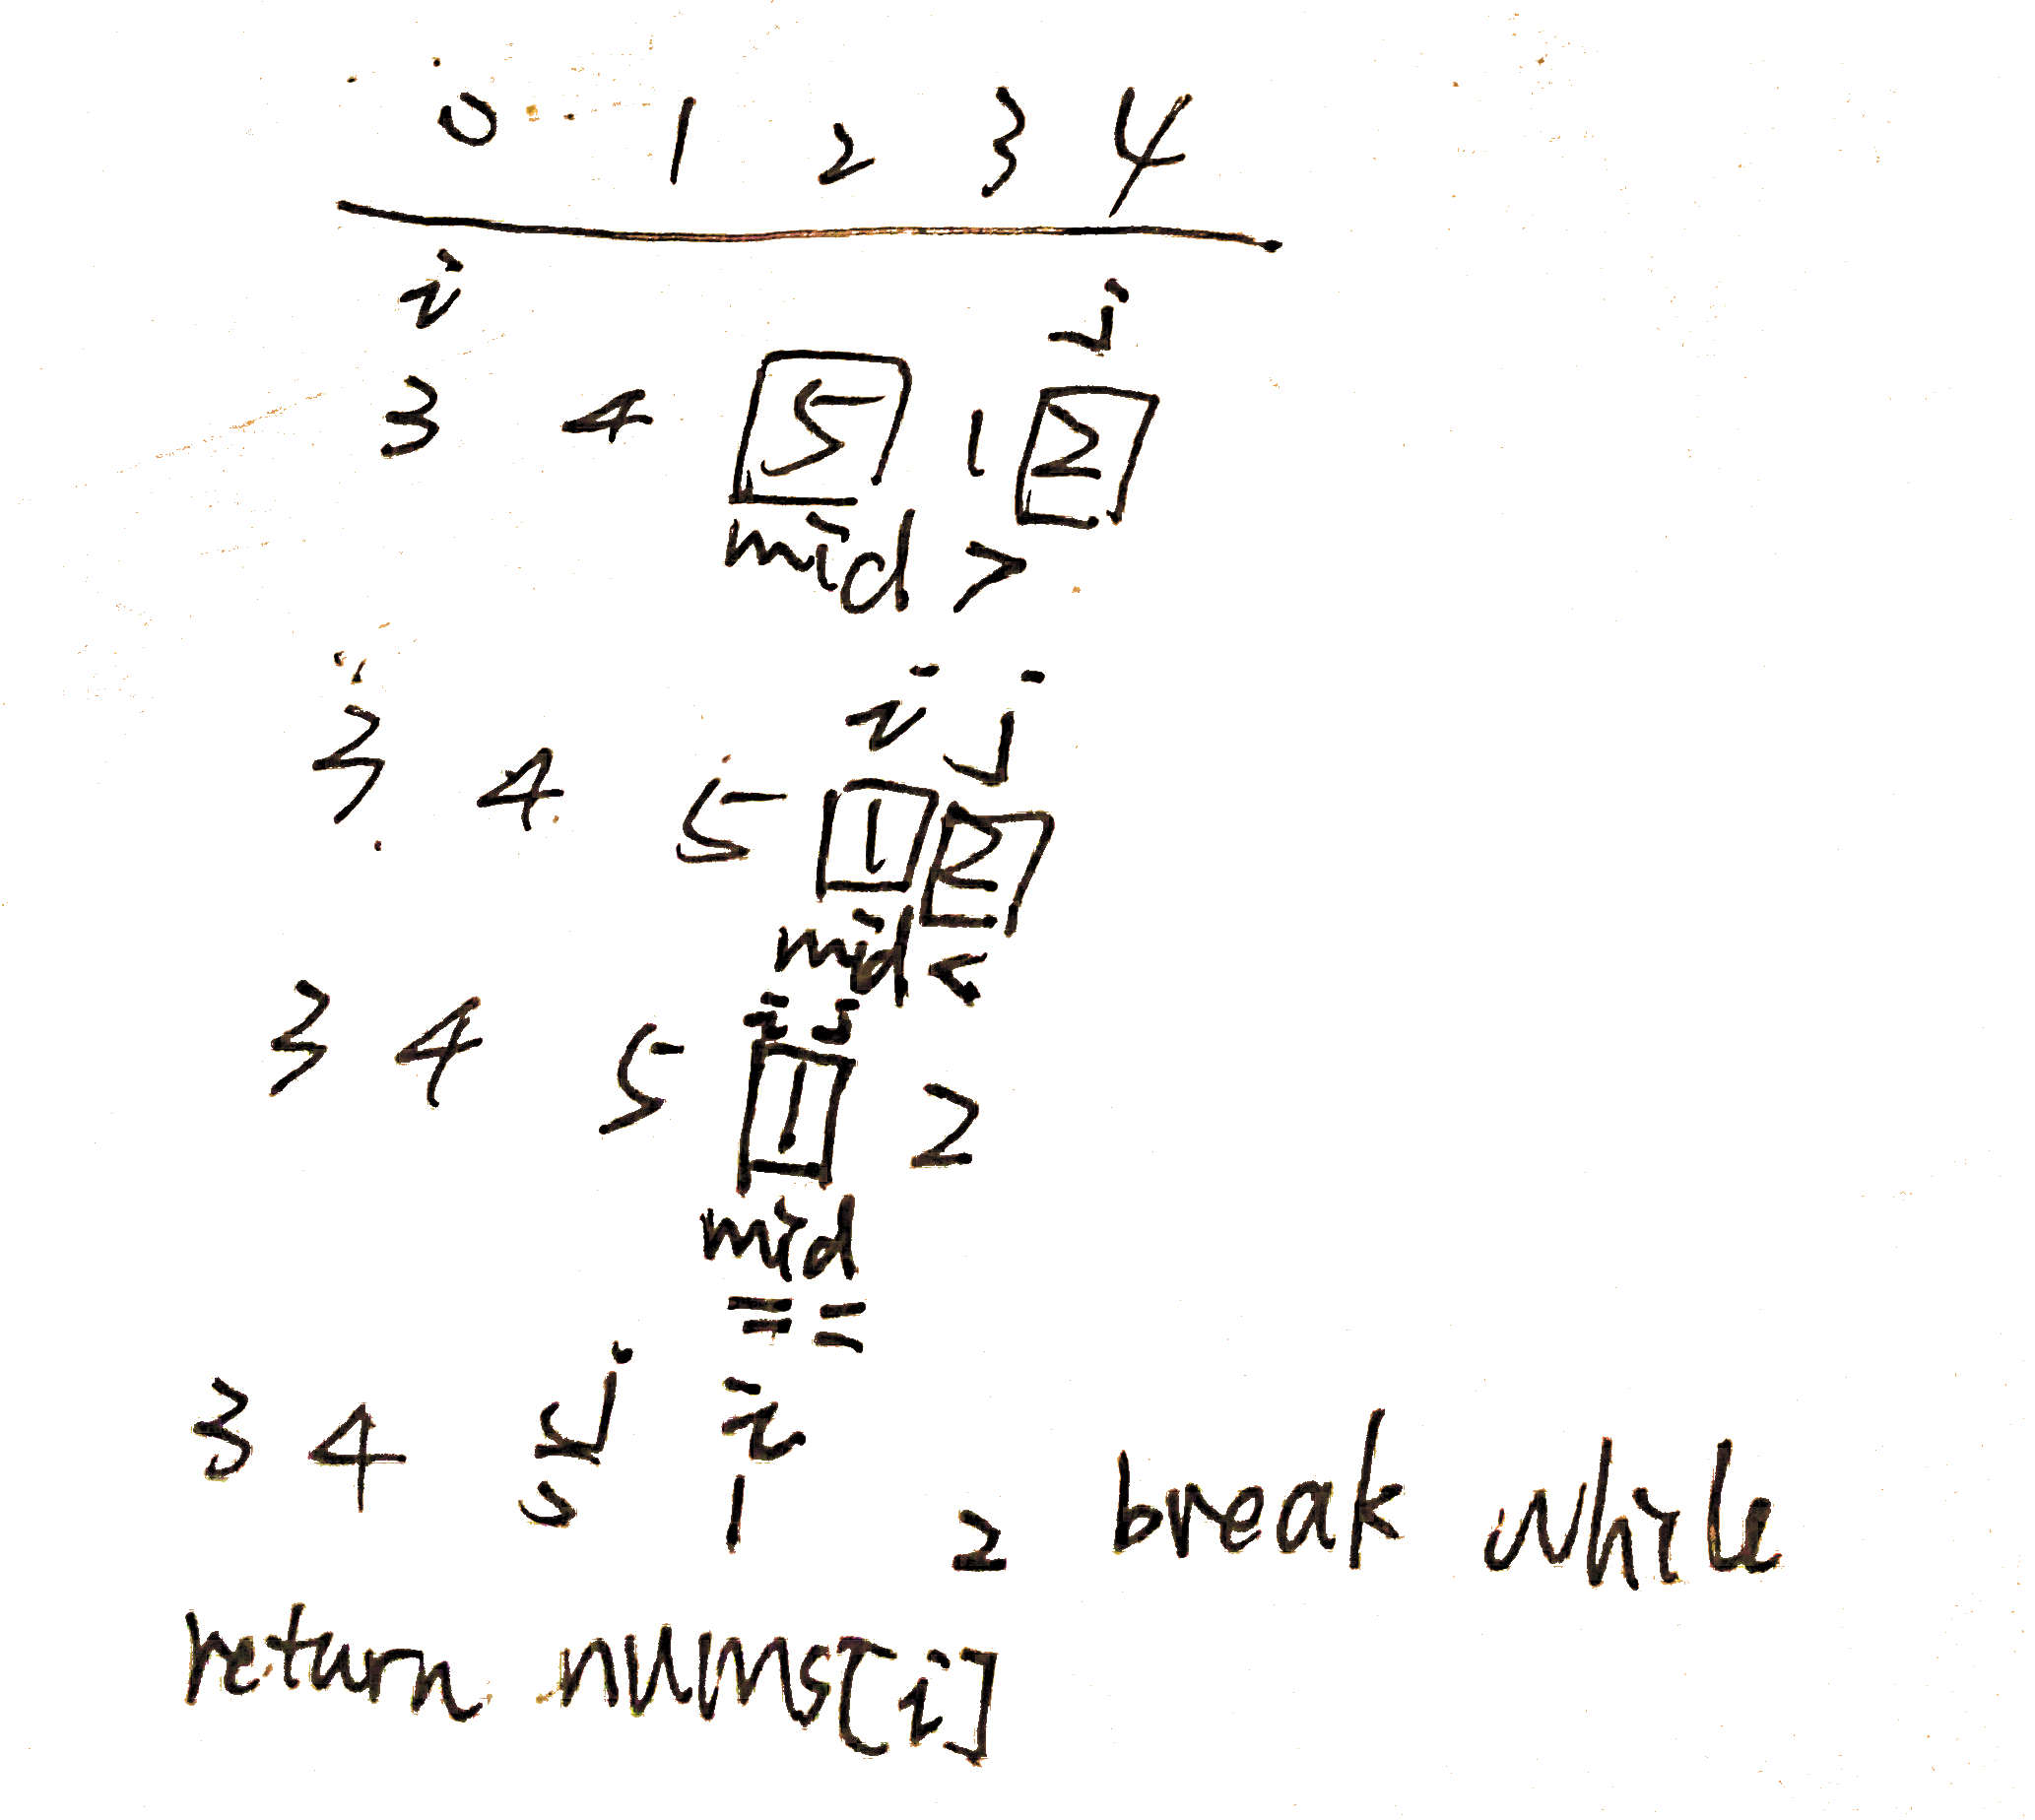 0 1 2 3 4
i j
3 4 5 1 2
mid >
i j
3 4 5 1 2
mid <
i j
3 4 5 1 2
mid
= =
j i
3 4 5 1 2 break while
return nums[i]